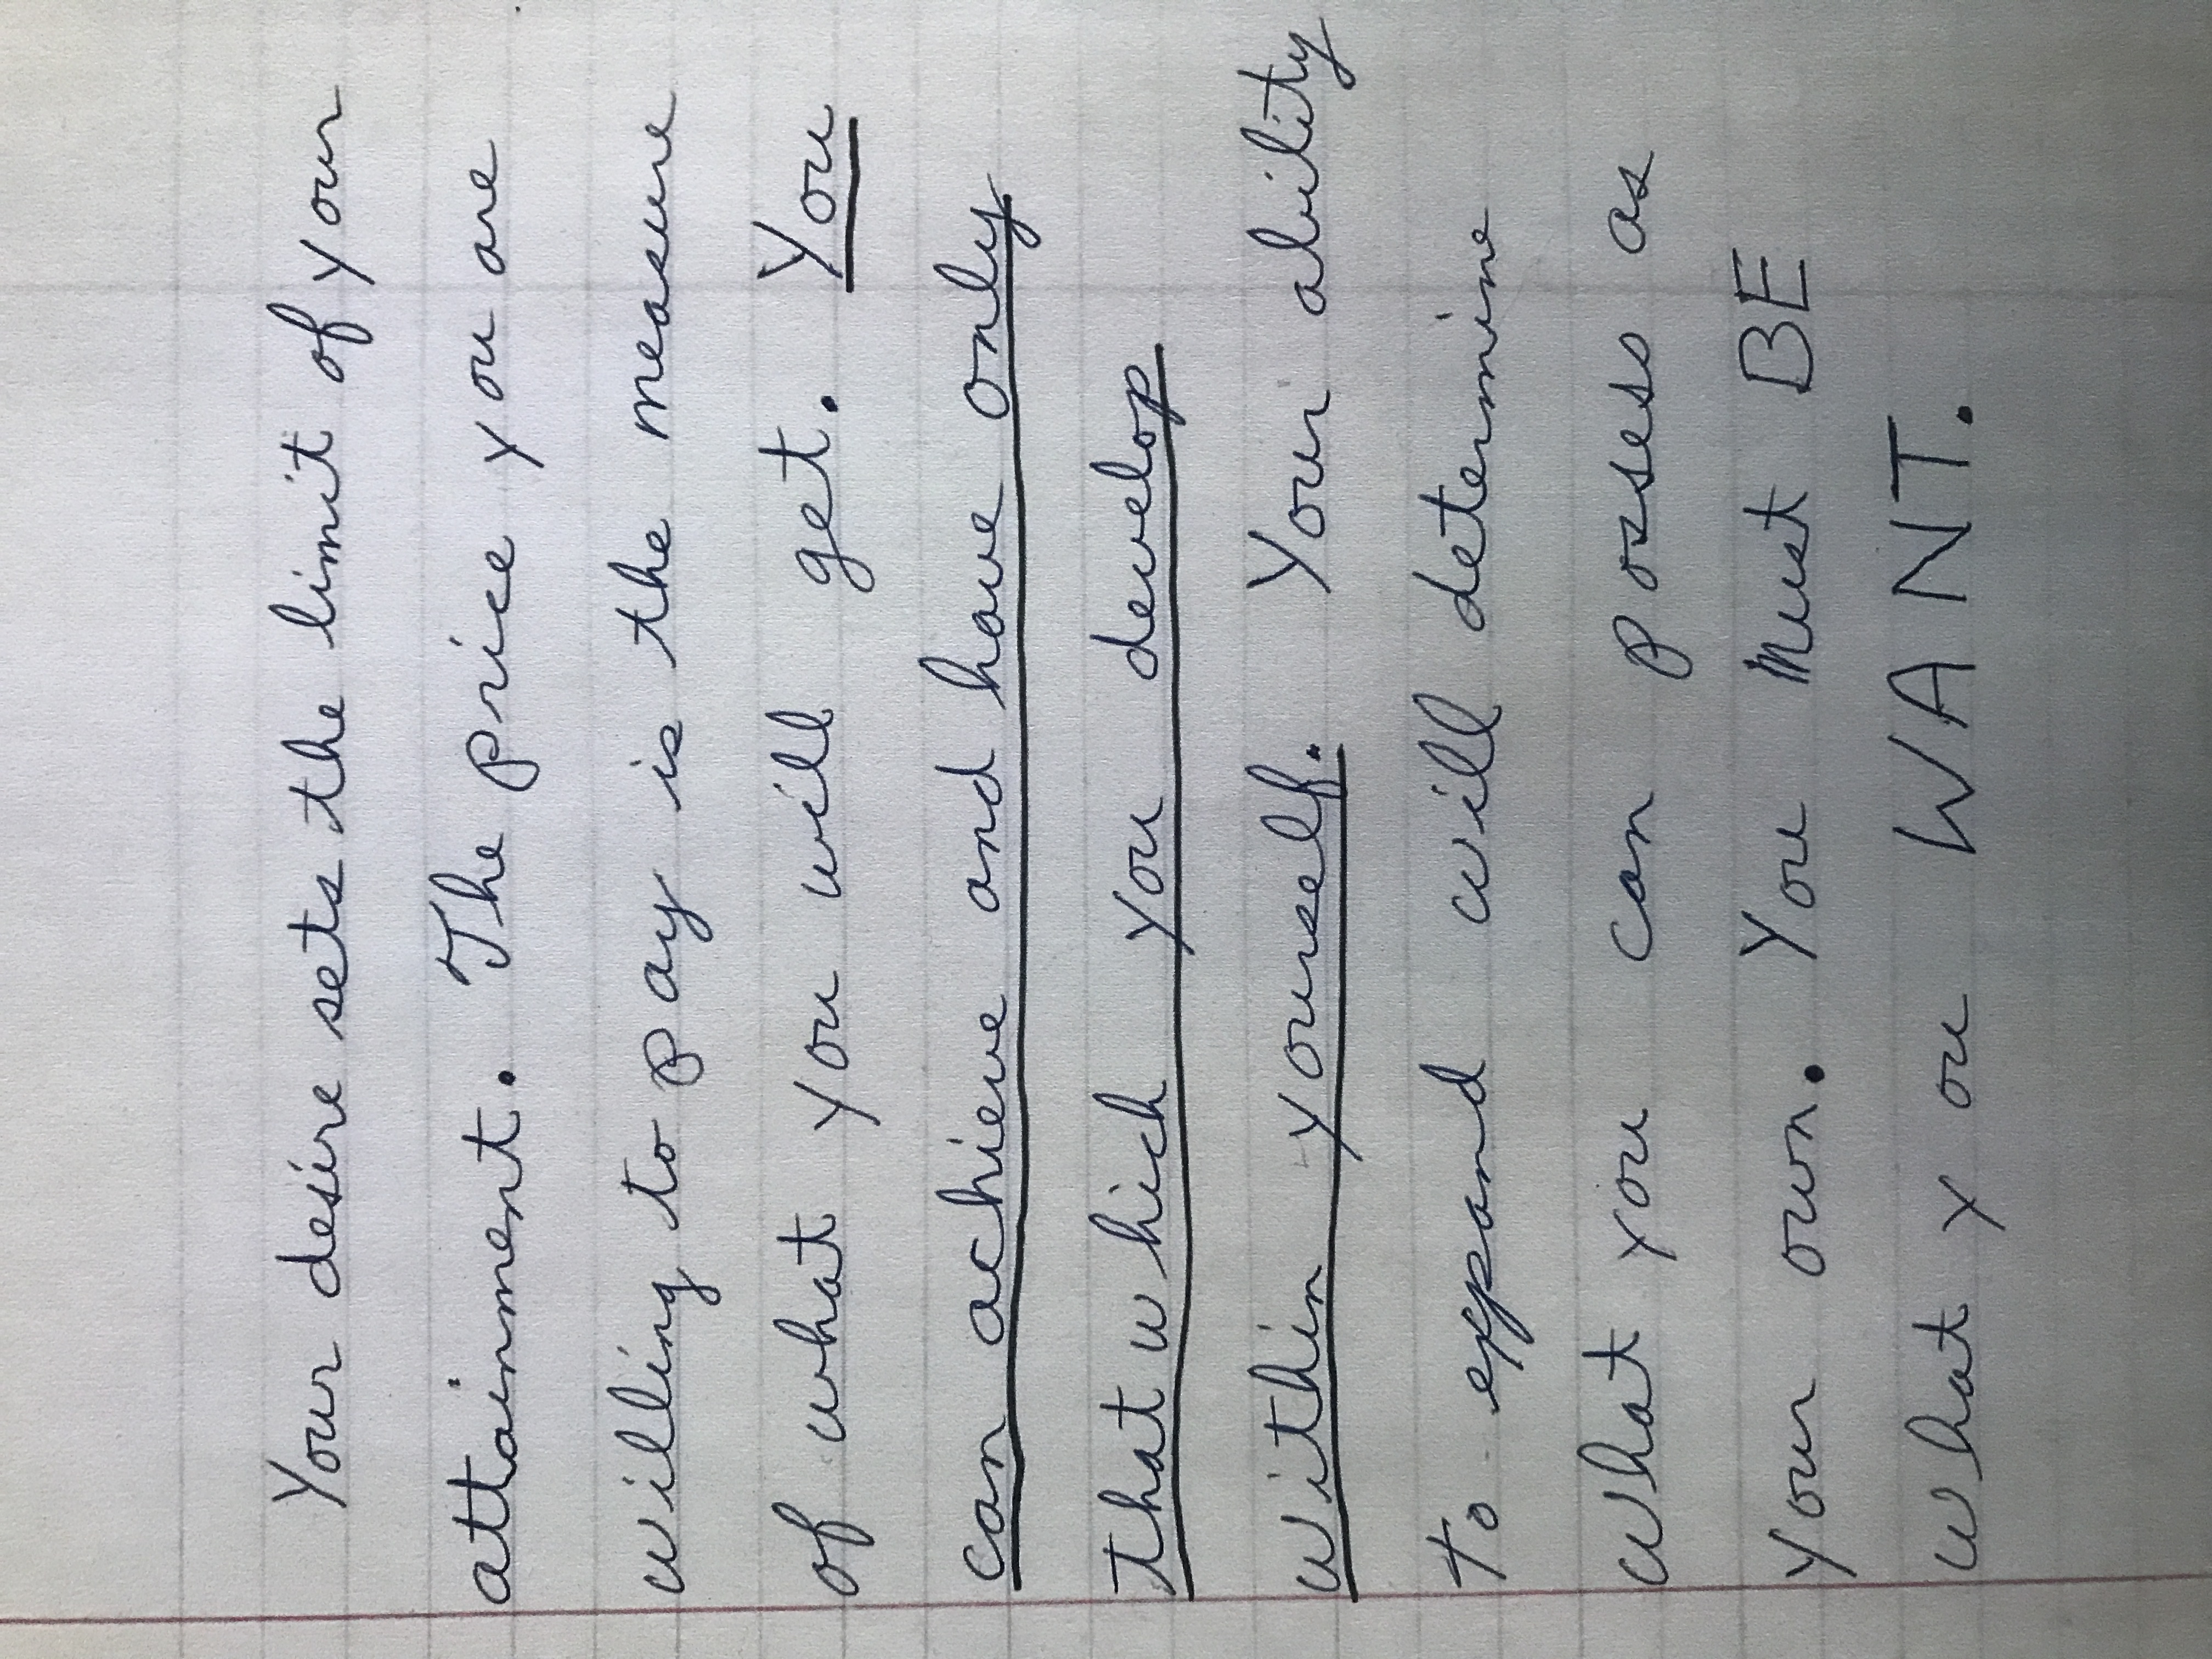 Your desire sets the limit of your
attainment. The price you are
willing to pay is the measure
of what you will get. You
can achieve and have only
that which you develop
within yourself. Your ability
to expand will determine
what you can possess as
your own. You must BE
what you WANT.